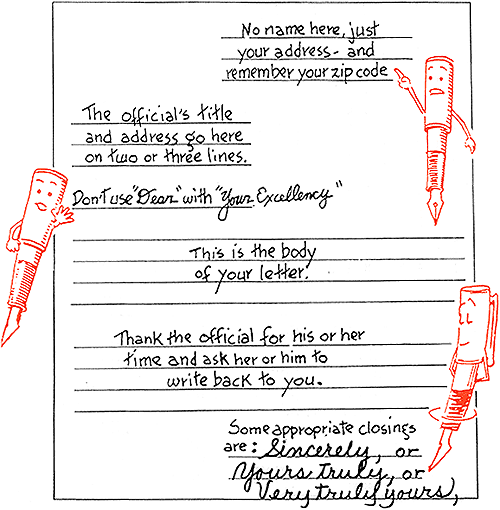 No name here, just
your address - and
remember your zip code
The official's title
and address go here
on two or three lines.
Don't use "Dear" with "Your Excellency"
This is the body
of your letter.
Thank the official for his or her
time and ask her or him to
write back to you.
Some appropriate closings
are: Sincerely, or
Yours truly, or
Very truly yours,